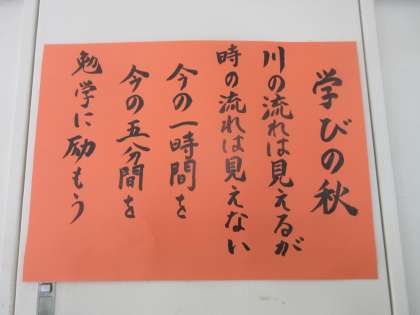 学びの秋
川の流れは見えるが
時の流れは見えない
今の一時間を
今の五分間を
勉学に励もう